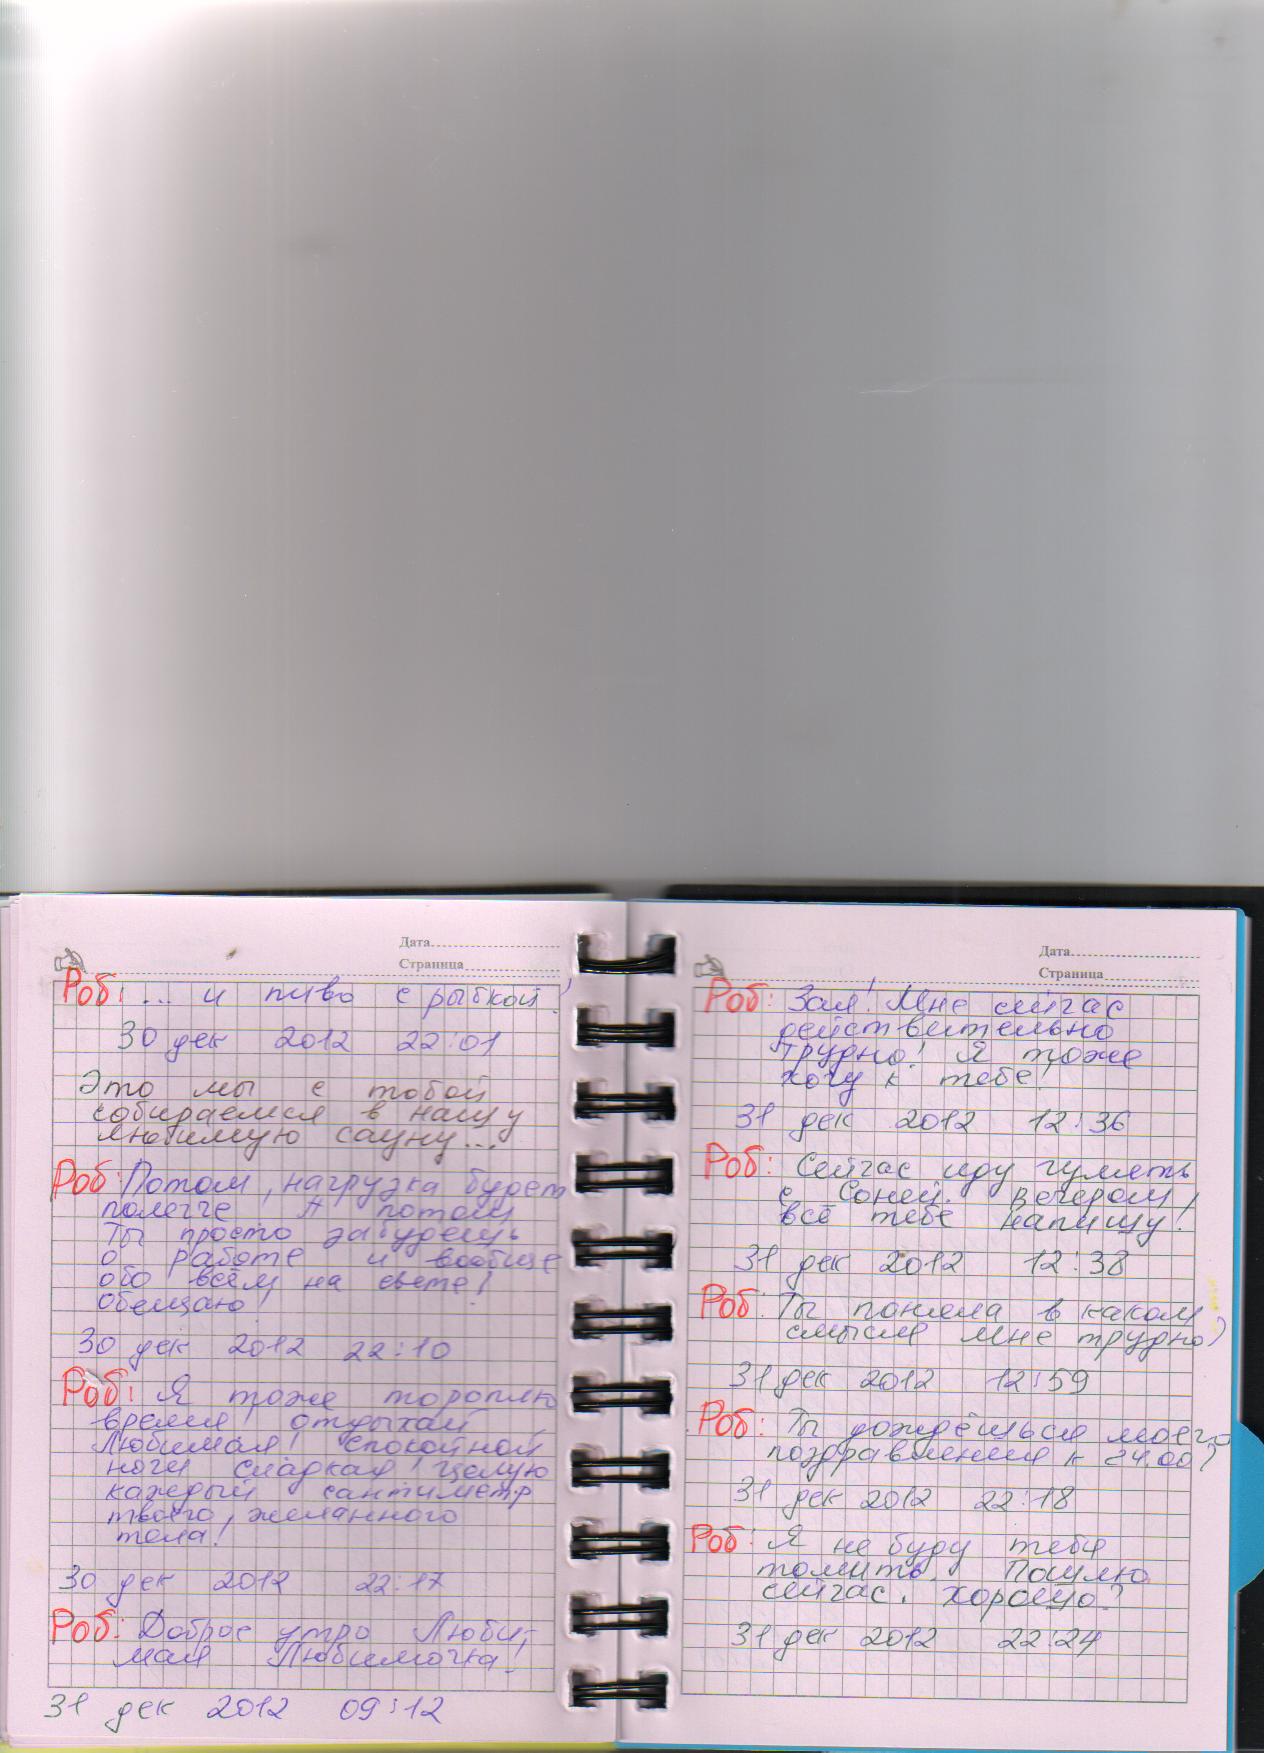 Дата
Страница
Роб: ... и пиво с рыбкой!
30 дек 2012 22:01
Это мы с тобой
собираемся в нашу
любимую сауну...
Роб: Потом, нагрузка будет
полегче А потом
Ты просто забудешь
о работе и вообще
обо всём на свете!
Обещаю!
30 дек 2012 22:10
Роб: Я тоже тороплю
время! отдыхай,
Любимая! Спокойной
ночи сладкая! Целую
каждый сантиметр
твоего, желанного
тела!
30 дек 2012 22:17
Роб: Доброе утро Люби-
мая Любимочка!
31 дек 2012 09:12
Дата
Страница
Роб: Зая! Мне сейчас
действительно
трудно! Я тоже
хочу к тебе!
31 дек 2012 12:36
Роб: Сейчас иду гулять
с Соней. Вечером
всё тебе напишу!
31 дек 2012 12:38
Роб: Ты поняла в каком
смысле мне трудно)
31 дек 2012 12:59
Роб: Ты дождёшься моего
поздравления к 24.00?
31 дек 2012 22:18
Роб: Я не буду тебя
томить. Пошлю
сейчас. Хорошо?
31 дек 2012 22:24